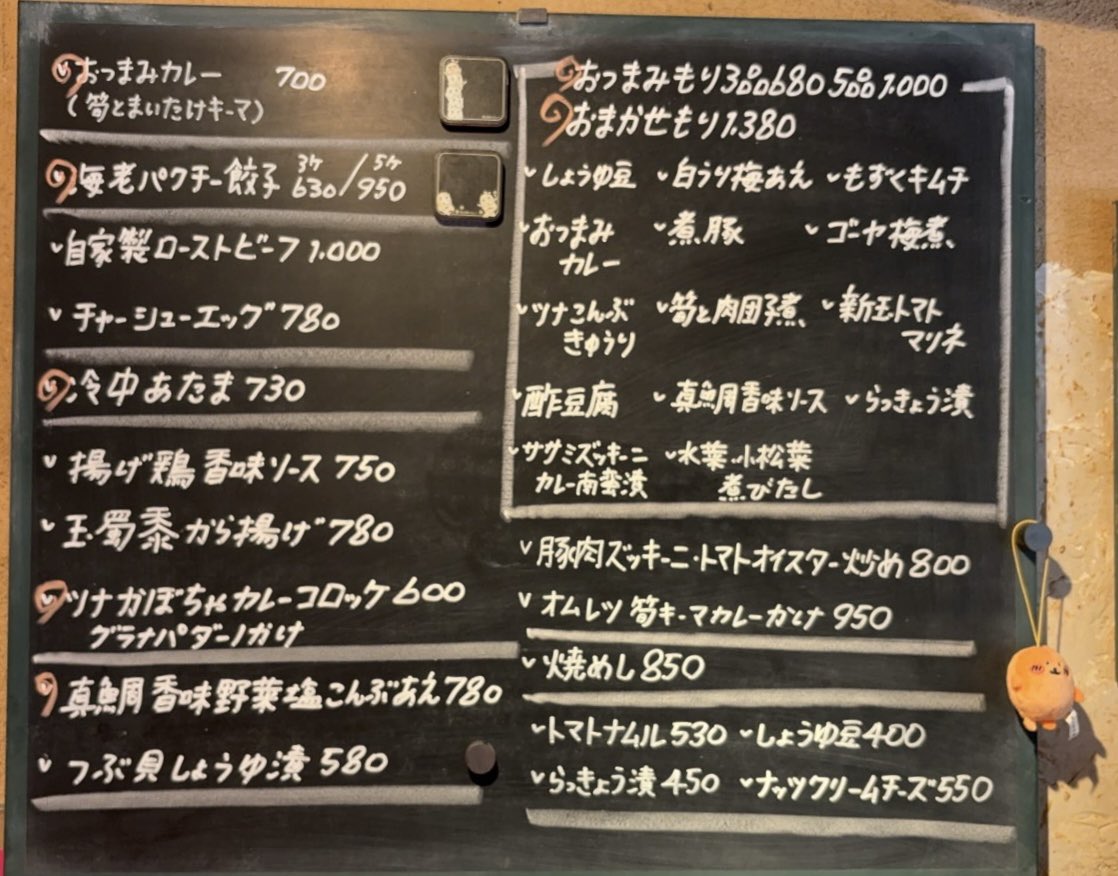 おつまみカレー 700
(筍とまいたけキーマ)
海老パクチー餃子 3ケ630/5ケ950
自家製ローストビーフ 1.000
チャーシューエッグ 780
冷中あたま 730
揚げ鶏香味ソース 750
玉蜀黍から揚げ 780
ツナかぼちゃカレーコロッケ 600
グラナパダーノかけ
真鯛香味野菜塩こんぶあえ 780
つぶ貝しょうゆ漬 580
おつまみもり3品680 5品1.000
おまかせもり1.380
しょうゆ豆 白うり梅あえ もずくキムチ
おつまみ 煮豚 ゴーヤ梅煮
カレー
ツナこんぶ 筍と肉団子煮 新玉トマト
きゅうり マリネ
酢豆腐 真鯛香味ソース らっきょう漬
ササミズッキーニ 水菜.小松菜
カレー南蛮漬 煮びたし
豚肉ズッキーニ・トマトオイスター炒め 800
オムレツ 筍キーマカレーかけ 950
焼めし 850
トマトナムル 530 しょうゆ豆 400
らっきょう漬 450 ナッツクリームチーズ 550